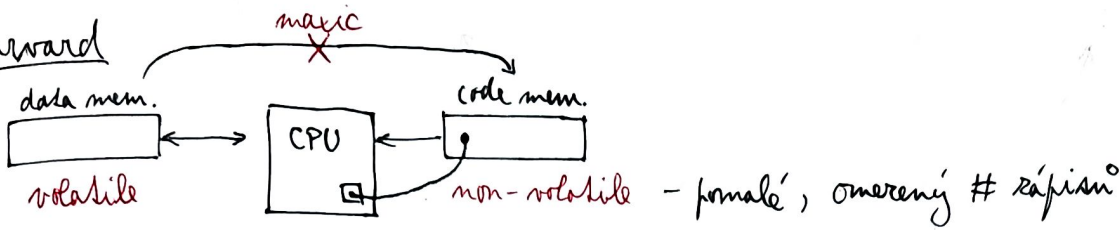 arvard
data mem.
CPU
code mem.
volatile
non-volatile - pomalé, omezený # zápisů